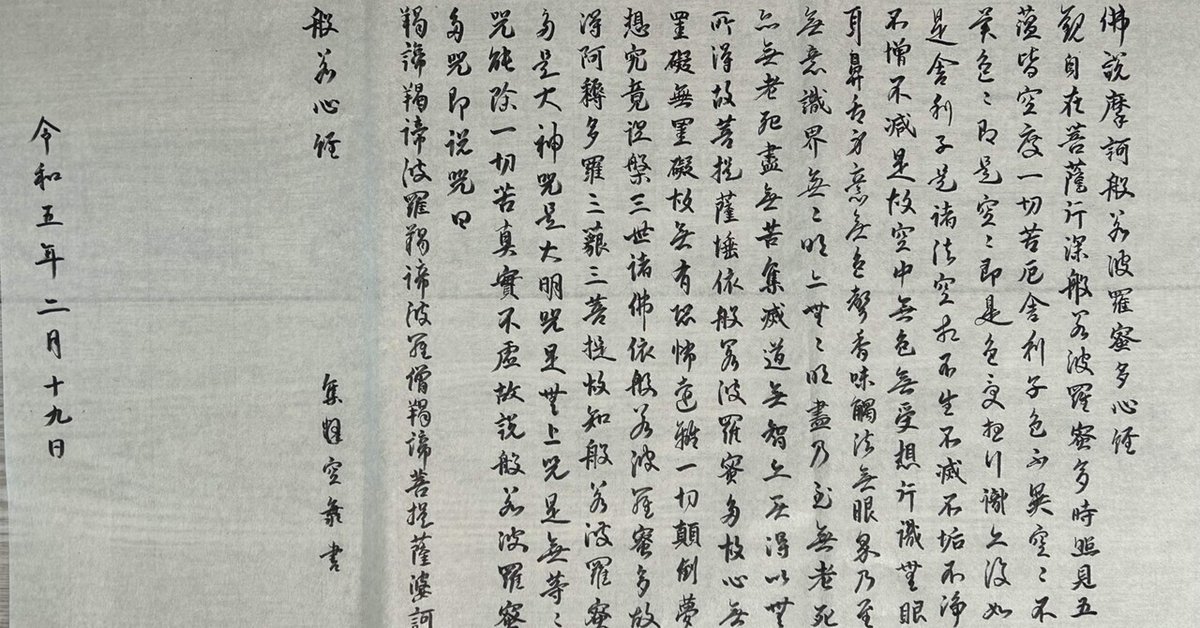 佛說摩訶般若波羅蜜多心經
觀自在菩薩行深般若波羅蜜多時照見五
蘊皆空度一切苦厄舍利子色不異空〻不
異色〻即是空〻即是色受想行識亦復如
是舍利子是諸法空相不生不滅不垢不淨
不增不減是故空中無色無受想行識無眼
耳鼻舌身意無色聲香味觸法無眼界乃至
無意識界無〻明亦無〻明盡乃至無老死
亦無老死盡無苦集滅道無智亦無得以無
所得故菩提薩埵依般若波羅蜜多故心無
罣礙無罣礙故無有恐怖遠離一切顛倒夢
想究竟涅槃三世諸佛依般若波羅蜜多故
得阿耨多羅三藐三菩提故知般若波羅蜜
多是大神咒是大明咒是無上咒是無等〻
咒能除一切苦真實不虛故說般若波羅蜜
多咒即說咒曰
羯諦羯諦波羅羯諦波羅僧羯諦菩提薩婆訶
般若心經
書
令和五年二月十九日